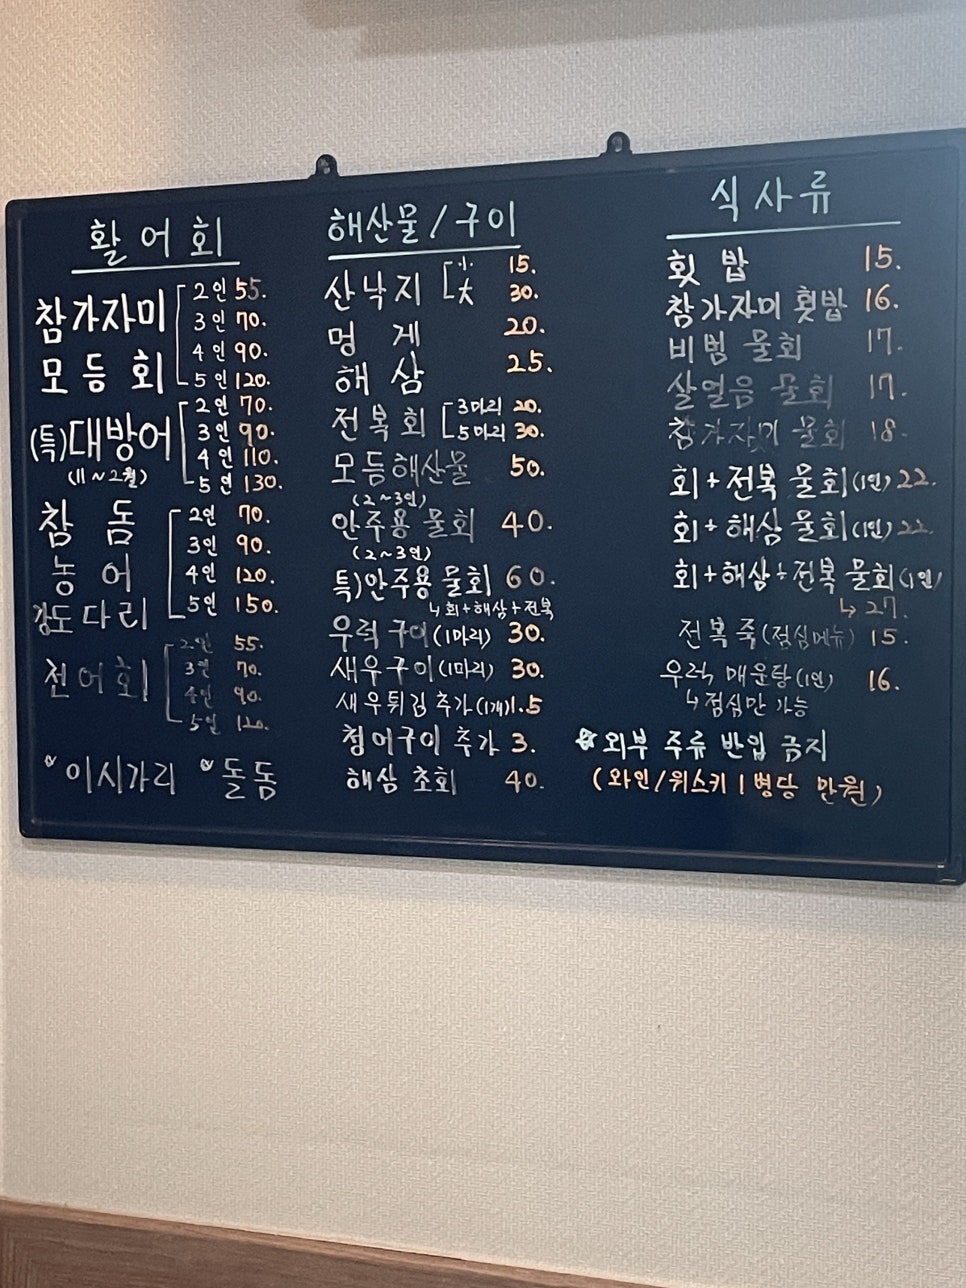 활어회
참가자미
모듬회
2인 55.
3인 70.
4인 90.
5인 120.
(특)대방어
(11~2월)
2인 70.
3인 90.
4인 110.
5인 130.
참돔
농어
강도다리
2인 70.
3인 90.
4인 120.
5인 150.
전어회
2인 55.
3인 70.
4인 90.
5인 120.
☆이시가리 ☆돌돔
해산물/구이
산낙지 小 15.
大 30.
멍게 20.
해삼 25.
전복회 3마리 20.
5마리 30.
모듬해산물 50.
(2~3인)
안주용 물회 40.
(2~3인)
특)안주용 물회 60.
↳회+해삼+전복
우럭구이(1마리) 30.
새우구이(1마리) 30.
새우튀김 추가(1개)1.5
청어구이 추가 3.
해삼 초회 40.
식사류
횟밥 15.
참가자미 횟밥 16.
비빔 물회 17.
살얼음 물회 17.
참가자미 물회 18.
회+전복 물회(1인) 22.
회+해삼 물회(1인) 22.
회+해삼+전복 물회(1인)
↳27.
전복죽(점심메뉴) 15.
우럭 매운탕(1인) 16.
↳점심만 가능
☆외부 주류 반입 금지
(와인/위스키 1병당 만원)